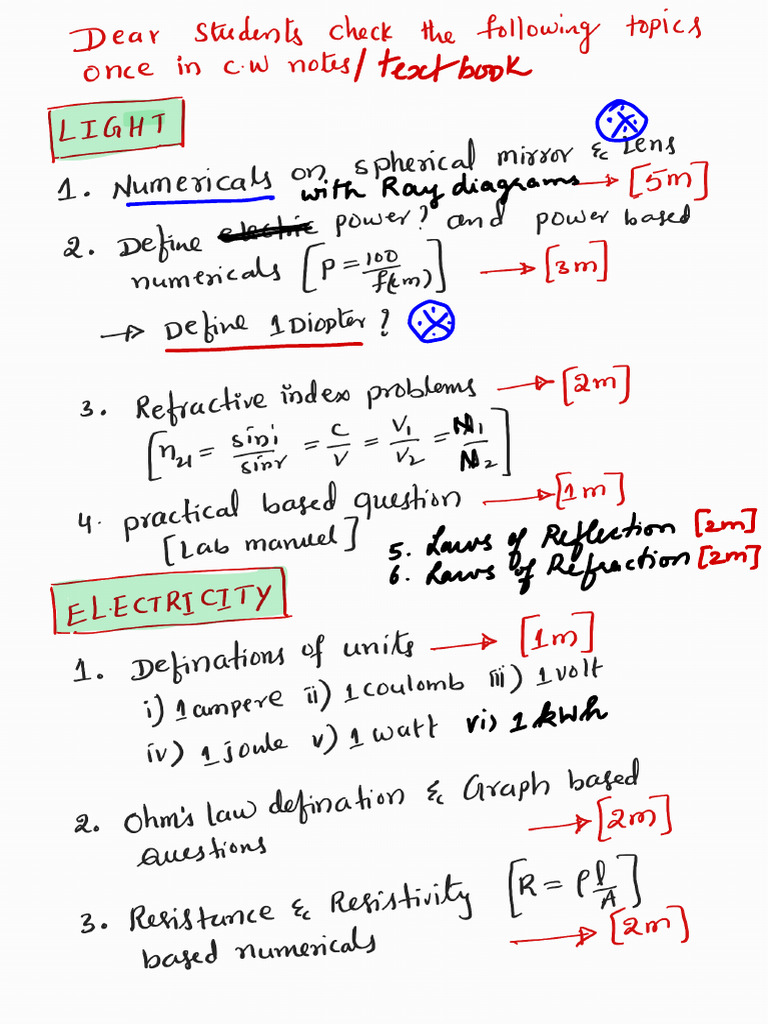 Dear Students check the following topics
once in c.w notes/textbook
LIGHT
1. Numericals on spherical mirror & Lens
with Ray diagrams → [5m]
2. Define electric power? and power based
numericals [P = 100/f(cm)] → [3m]
→ Define 1 Diopter?
3. Refractive index problems → [2m]
[n21 = sini/sinr = c/v = V1/V2 = N1/N2]
4. practical based question → [1m]
[Lab manuel]
5. Laws of Reflection [2m]
6. Laws of Refraction [2m]
ELECTRICITY
1. Definations of units → [1m]
i) 1 ampere ii) 1 coulomb iii) 1 volt
iv) 1 joule v) 1 watt vi) 1 kwh
2. Ohm's law defination & Graph based
Questions → [2m]
3. Resistance & Resistivity [R = ρl/A]
based numericals → [2m]